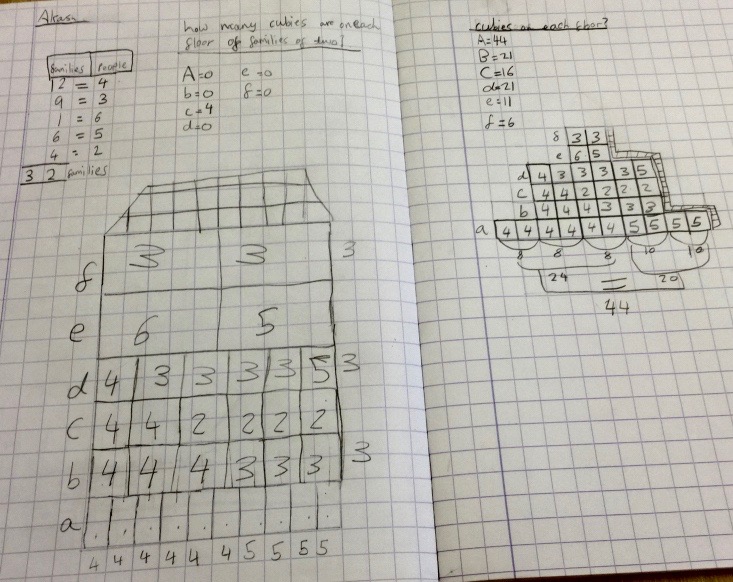 Akash
how many cubies are on each
floor of families of two?
families People
12 = 4
9 = 3
1 = 6
6 = 5
4 = 2
32 families
A=0 e=0
b=0 f=0
c=4
d=0
f 3 3 3
e 6 5
d 4 3 3 3 3 5 3
c 4 4 2 2 2 2
b 4 4 4 3 3 3 3
a
4 4 4 4 4 4 5 5 5 5
cubies on each floor?
A=44
B=21
C=16
d=21
e=11
f=6
f 3 3
e 6 5
d 4 3 3 3 3 5
c 4 4 2 2 2 2
b 4 4 4 3 3 3
a 4 4 4 4 4 4 5 5 5 5
8 8 8 10 10
24 = 20
44